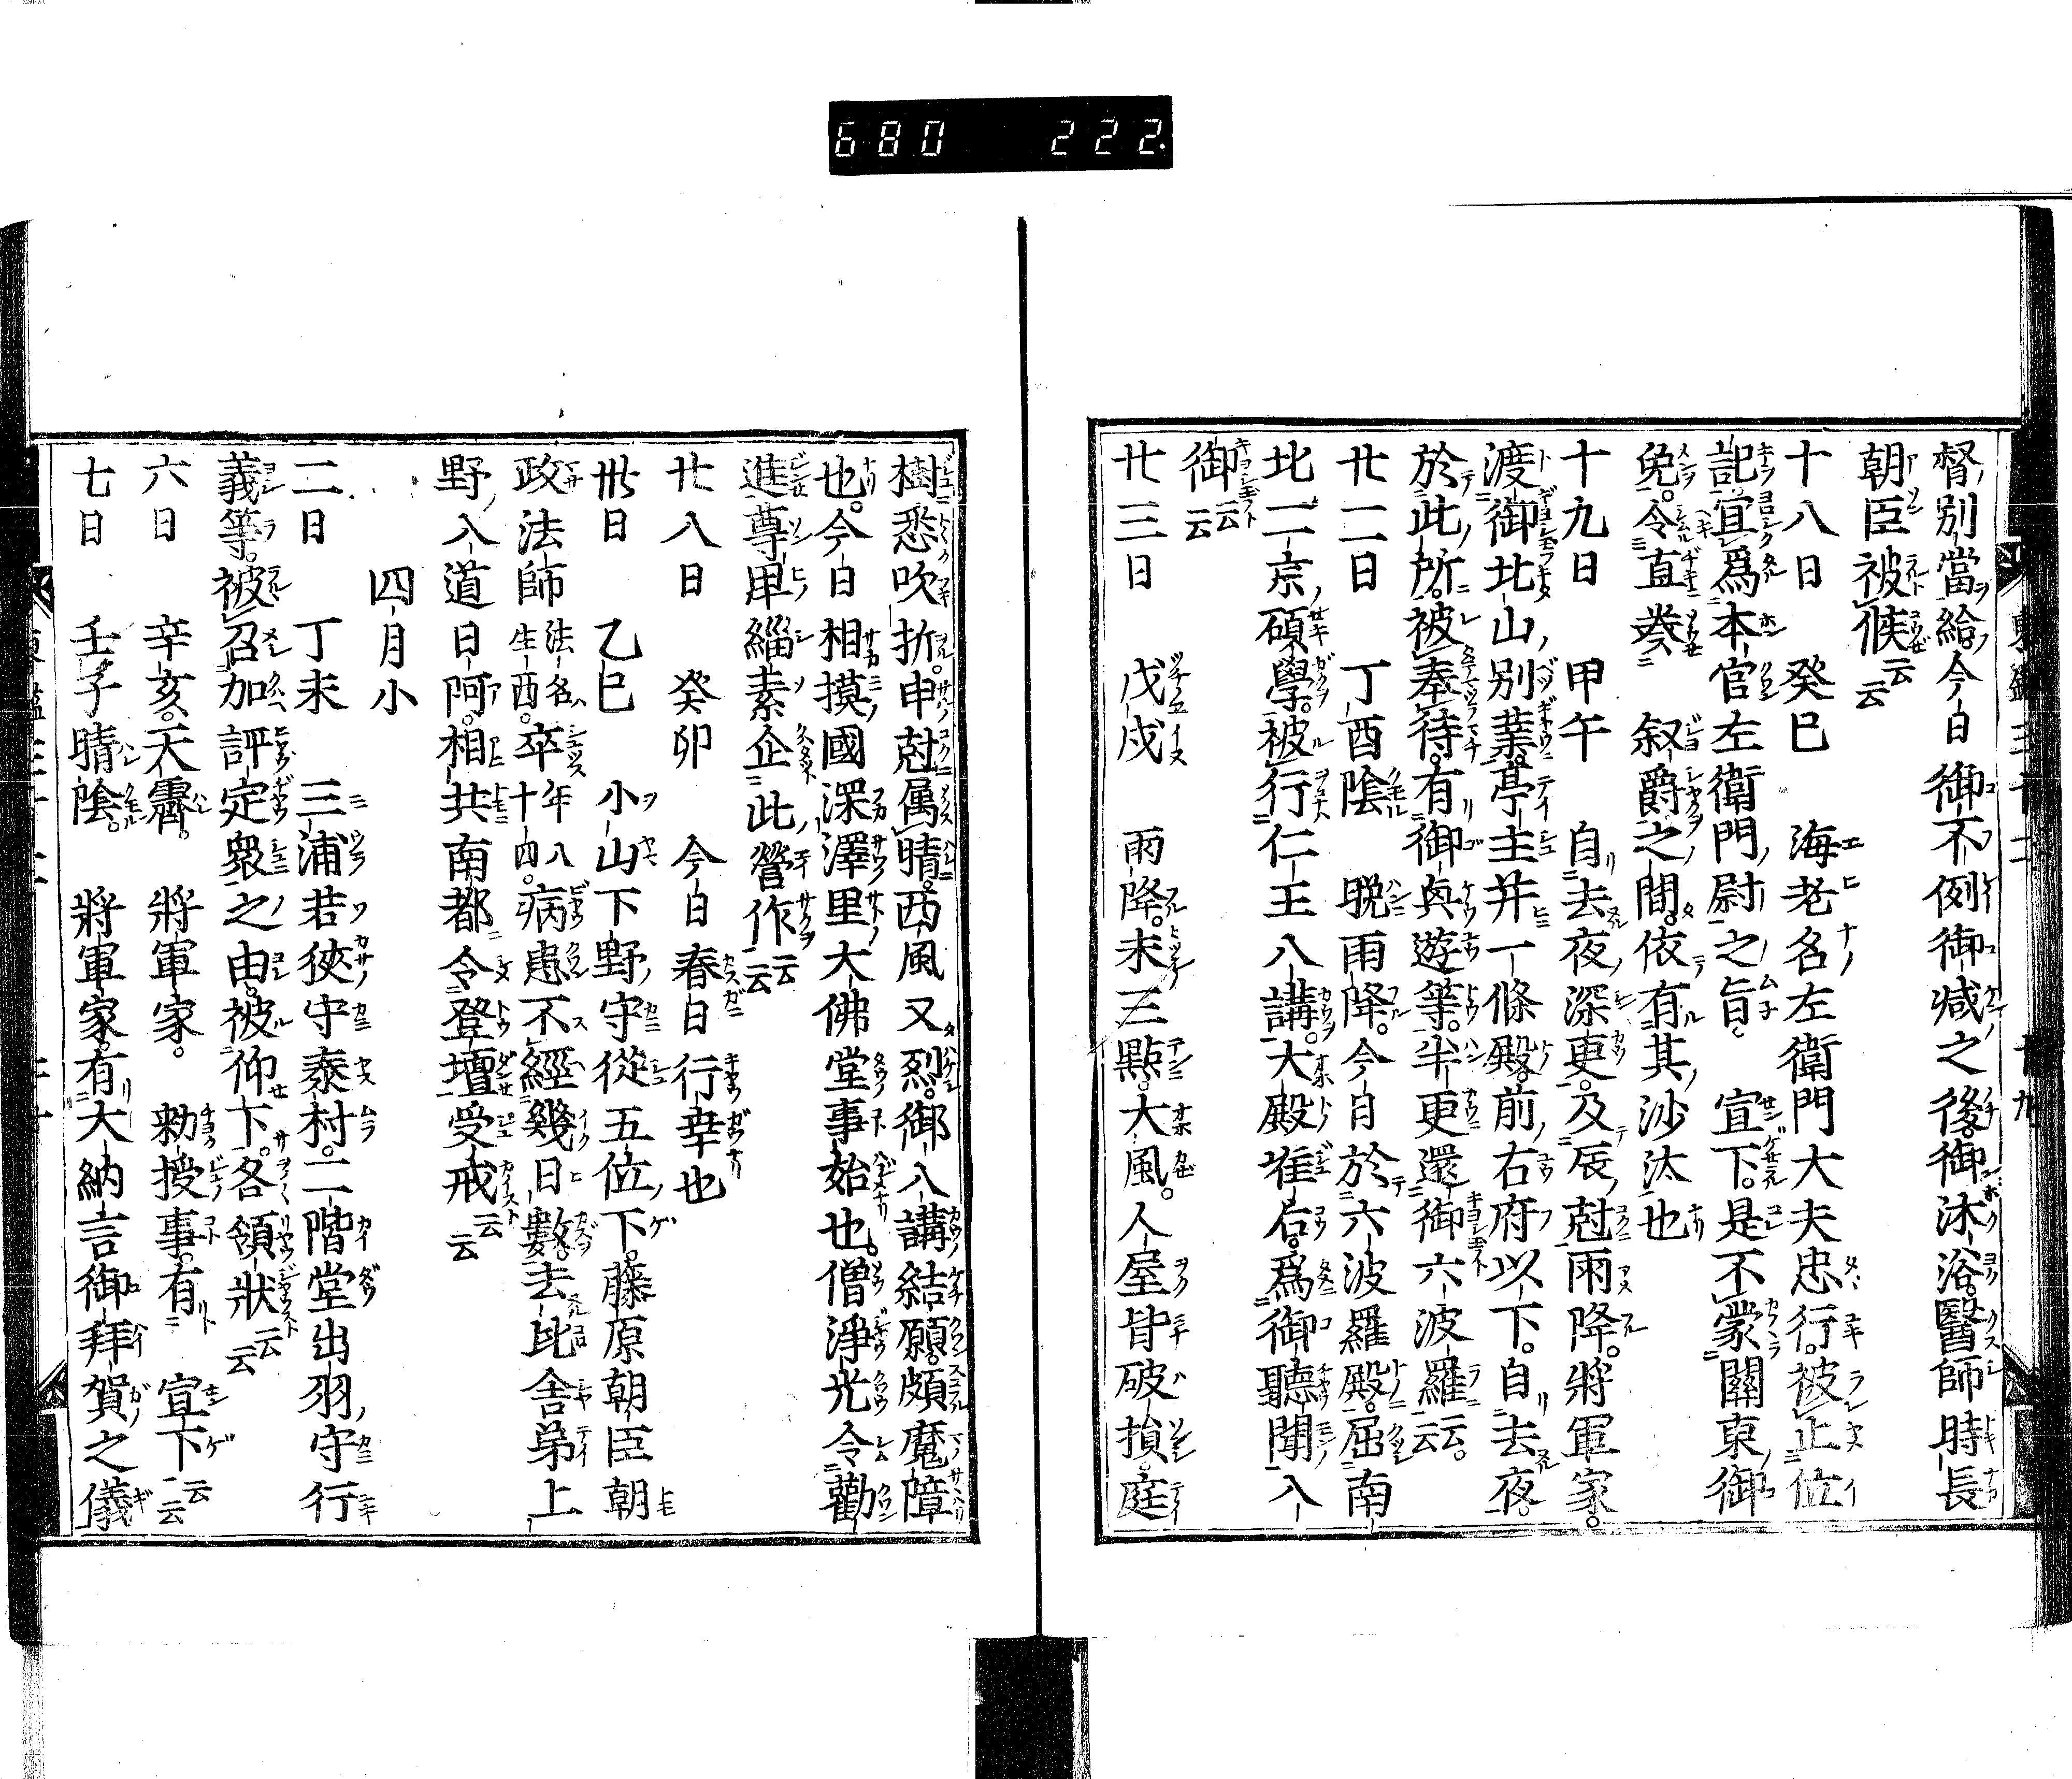 680 222.
督別當給今日御不例御減之後御沐浴醫師時長
朝臣被候云云
十八日 癸巳 海老名左衛門大夫忠行被止位
記宜爲本官左衛門尉之旨 宣下是不蒙關東御
免令直奏 叙爵之間依有其沙汰也
十九日 甲午 自去夜深更及辰尅雨降將軍家
渡御北山別業亭主并一條殿前右府以下自去夜
於此所被奉待有御奧遊等半更還御六波羅云云
廿二日 丁酉陰 晩雨降今日於六波羅殿屈南
北二京碩學被行仁王八講大殿准后爲御聽聞入
御云云
廿三日 戊戌 雨降未三點大風人屋皆破損庭
樹悉吹折申尅属晴西風又烈御八講結願頗魔障
也今日相摸國深澤里大佛堂事始也僧淨光令勸
進尊卑緇素企此營作云云
廿八日 癸卯 今日春日行幸也
卅日 乙巳 小山下野守從五位下藤原朝臣朝
政法師法名生西卒年八十四病患不經幾日數去比舎弟上
野入道日阿相共南都令登壇受戒云云
四月小
二日 丁未 三浦若狹守泰村二階堂出羽守行
義等被召加評定衆之由被仰下各領狀云云
六日 辛亥天霽 將軍家 勅授事有 宣下云云
七日 壬子晴陰 將軍家有大納言御拜賀之儀